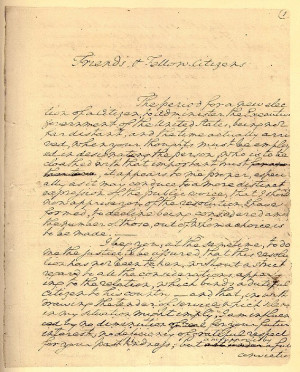 1
Friends, & Fellow-Citizens
The period for a new elec-
tion of a Citizen, to Administer the Executive
Government of the United States, being not
far distant, and the time actually arri-
ved, when your thoughts must be employ-
ed in designating the person, who is to be
cloathed with that important trust
it appears to me proper, especi-
ally as it may conduce to a more distinct
expression of the public voice, that I should
now apprise you of the resolution I have
formed, to decline being considered among
the number of those, out of whom a choice is
to be made.
I beg you, at the same time, to do
me the justice to be assured, that this resolu-
tion has not been taken, without a strict
regard to all the considerations appertain-
ing to the relation, which binds a dutiful
citizen to his country, and that, in with
drawing the tender of service which silence
in my situation might imply, I am influen
ced by no diminution of zeal for your future
interest, no deficiency of grateful respect
for your past kindness; but
conviction